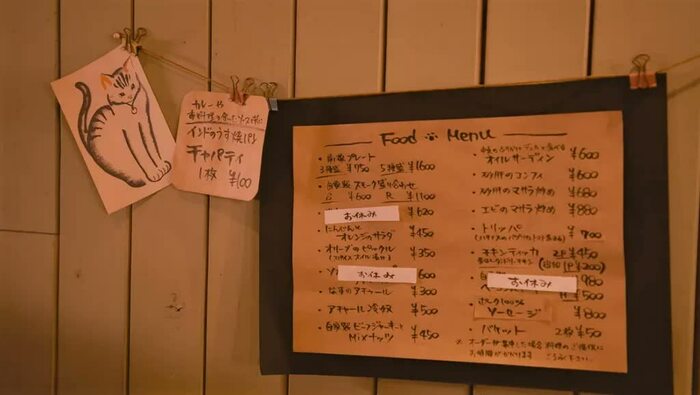 カレーや
インドのうす焼パン
チャパティ
1枚 ¥100
Food Menu
前菜プレート
3種盛 ¥950 5種盛 ¥1600
自家製 スモーク盛り合わせ
¥600 R ¥1100
お休み ¥620
にんじんと
オレンジのサラダ ¥450
オリーブのピックル ¥350
お休み 600
なすのアチャール ¥300
アチャール冷奴 ¥500
自家製 ビーフジャーキーと
Mixナッツ ¥450
オイルサーディン ¥600
コンフィ ¥600
のマサラ炒め ¥680
エビのマサラ炒め ¥880
トリッパ ¥700
チキンティッカ 2P ¥450
(追加 1P ¥200)
お休み 980
¥500
ポーク100%
ソーセージ ¥800
バケット 2枚 ¥50
※ オーダーが集中した場合 料理のご提供に
お時間がかかります ご了承下さい。